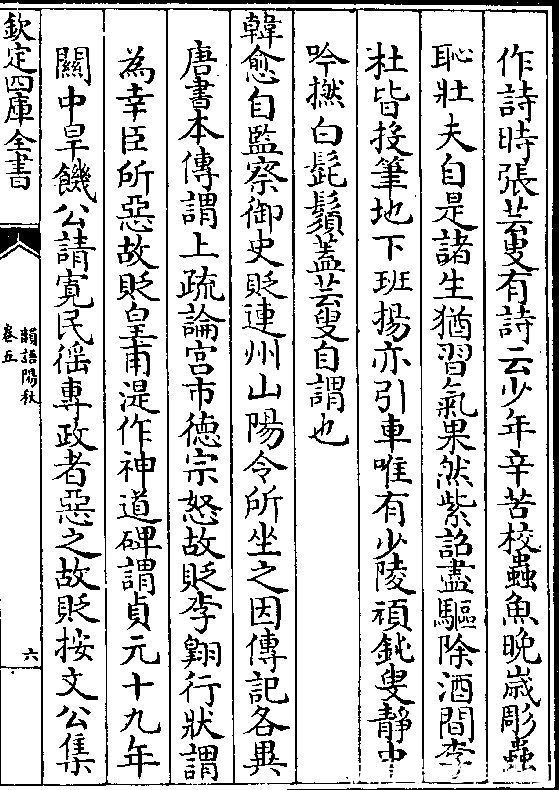 作詩時張芸叟有詩云少年辛苦校蟲魚晚歲彫蟲
恥壯夫自是諸生猶習氣果然紫詔盡驅除酒間李
杜皆投筆地下班揚亦引車唯有少陵頑鈍叟靜中
吟撚白髭鬚蓋芸叟自謂也
韓愈自監察御史貶連州山陽令所坐之因傳記各異
唐書本傳謂上疏論宮市德宗怒故貶李翺行狀謂
為幸臣所惡故貶皇甫湜作神道碑謂貞元十九年
關中旱饑公請寛民徭專政者惡之故貶按文公集
欽定四庫全書
韻語陽秋
卷五
六